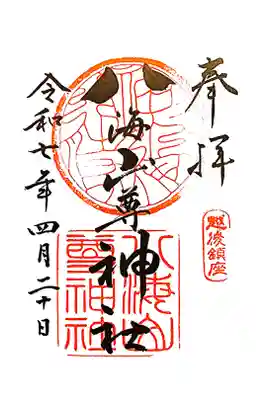 奉拝
越後鎮座
八海山尊神社
令和七年四月二十日
八海山尊神社